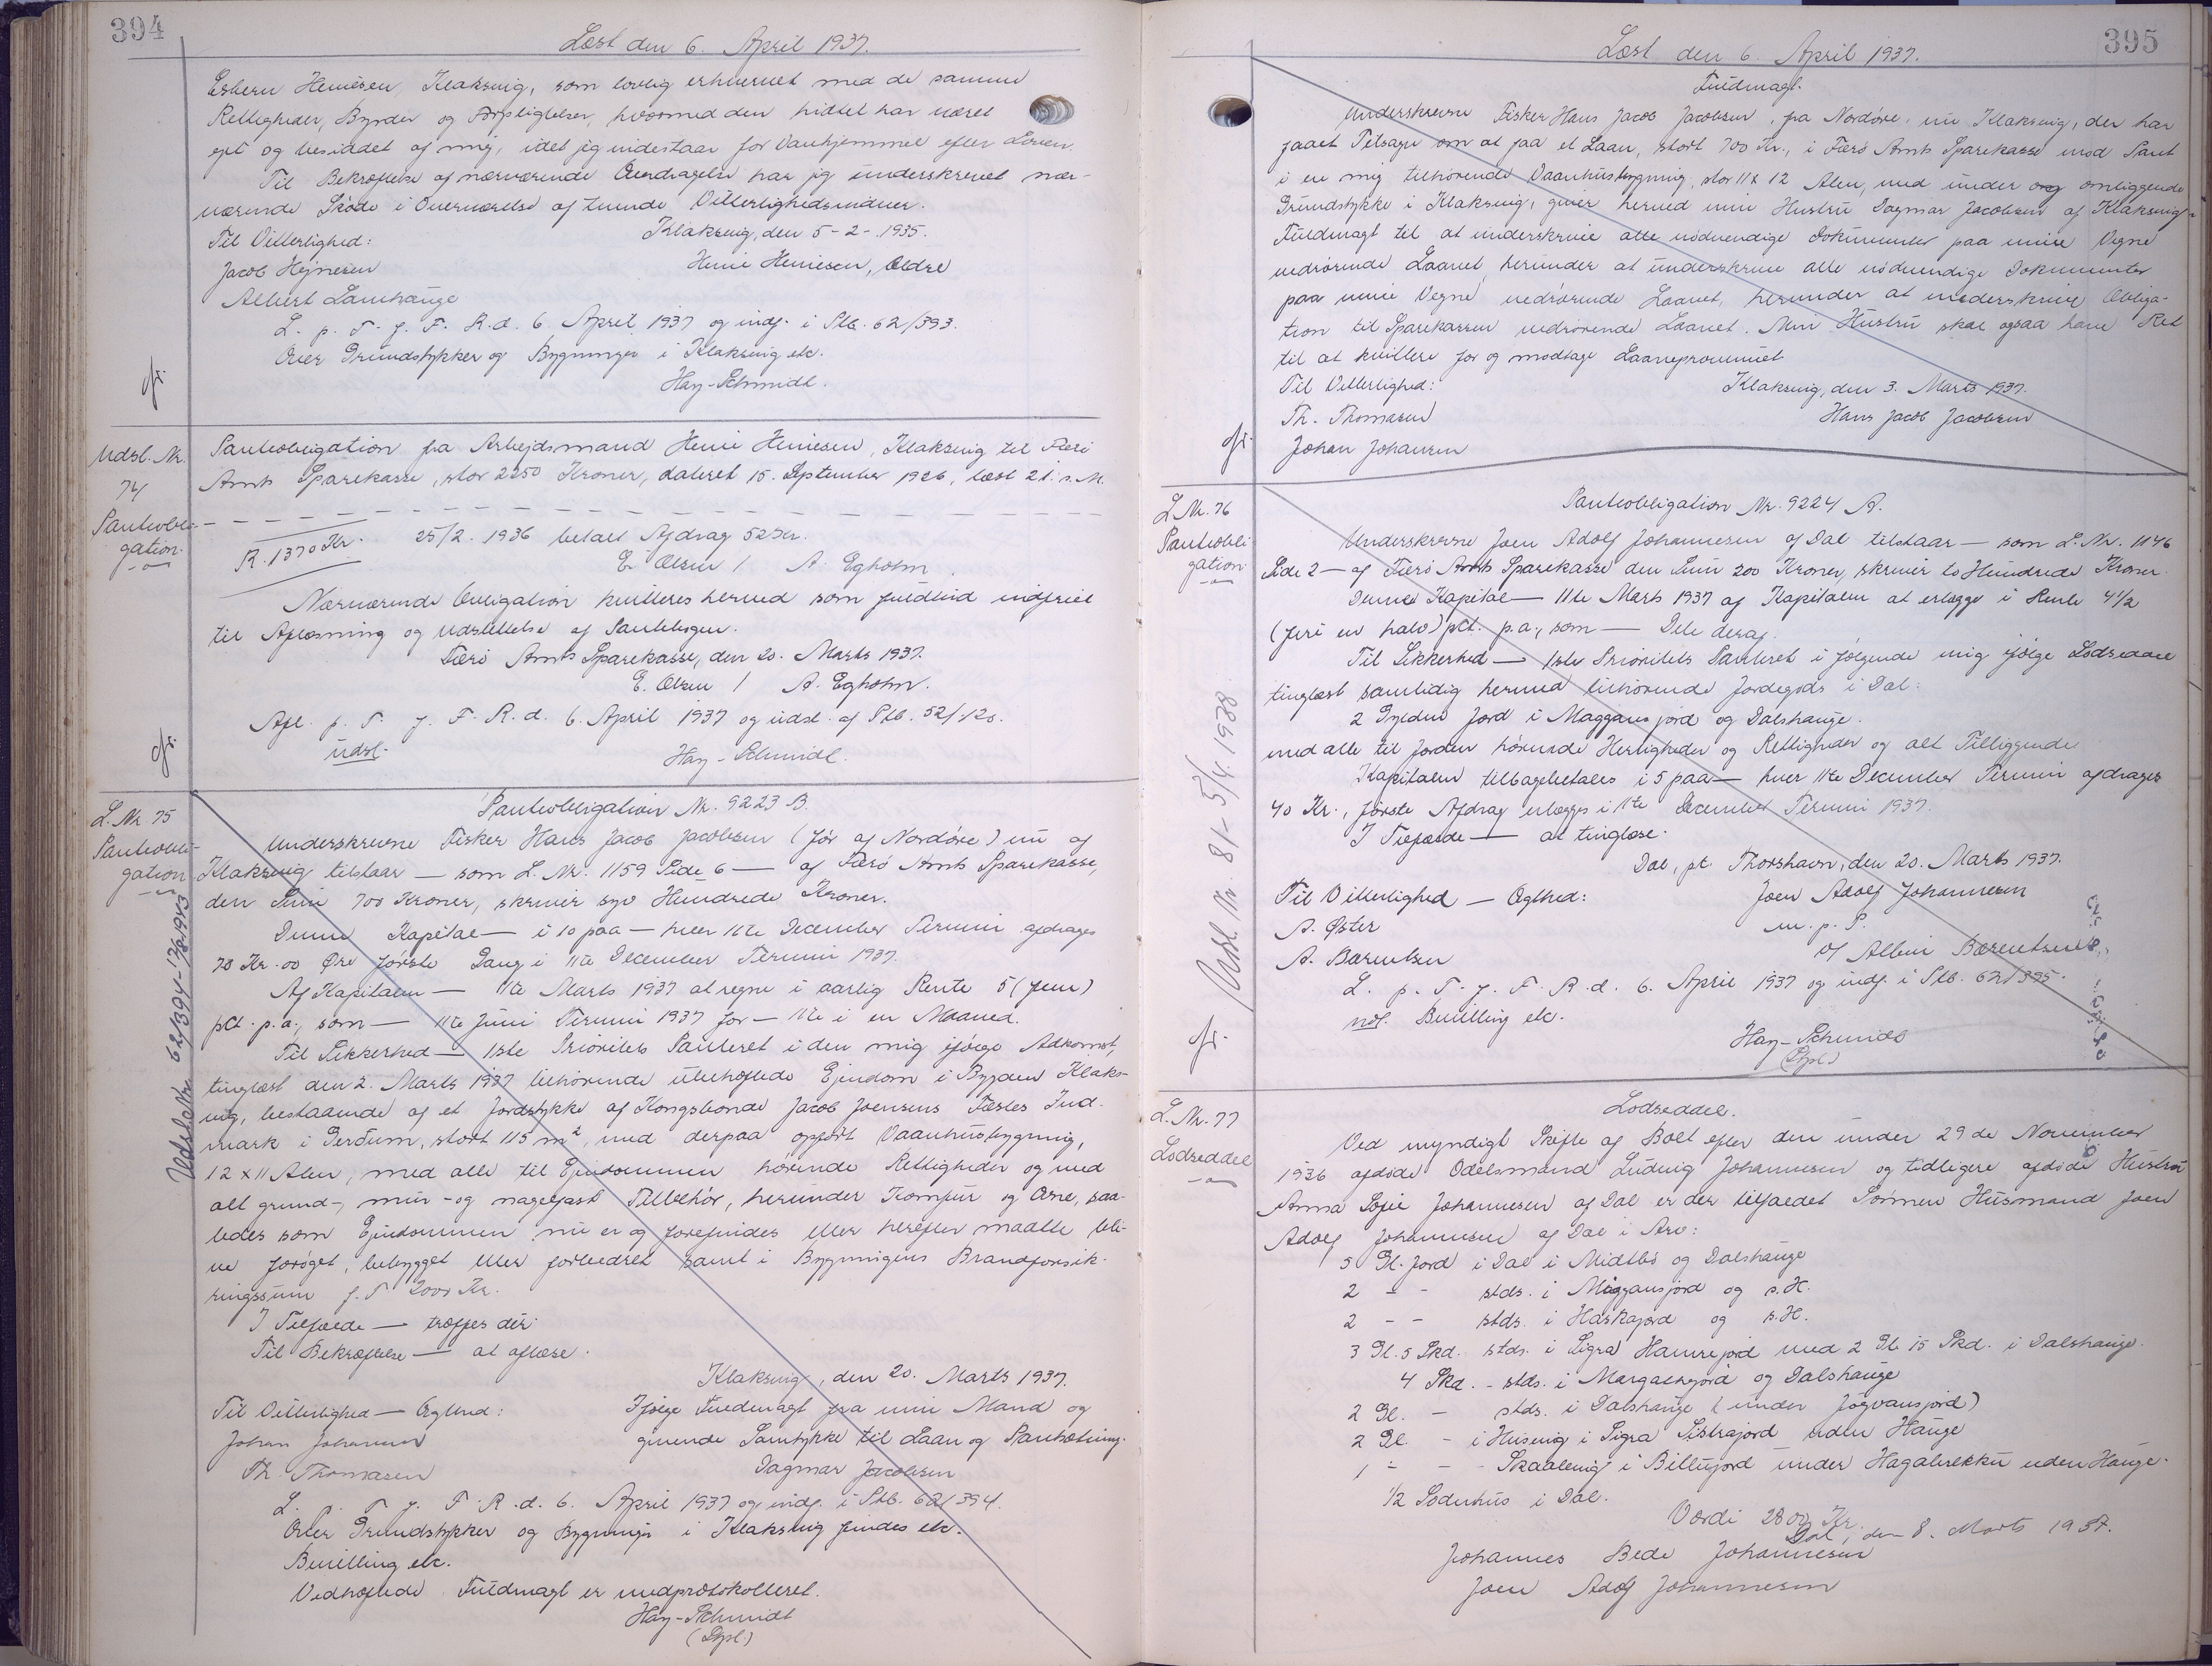 394
Læst den 6. April 1937.
Esbern Heniesen, Klaksvig, som lovlig erhvervet med de samme
Rettigheder, Byrder og Forpligtelser, hvormed den hidtil har været
ejet og besiddet af mig, idet jeg indestaar for Vanhjemmel efter Loven.
Til Bekræftelse af nærværende Overdragelse har jeg underskrevet nær-
værende Skøde i Overværelse af tvende Vitterlighedsvidner.
Til Vitterlighed: Klaksvig, den 5-2-1935.
Jacob Hejnesen Heine Heniesen, Ældre
Albert Lamhauge
L. p. T. f. F. R. d. 6. April 1937 og indf. i Ptb. 62/393.
Over Grundstykker og Bygninger i Klaksvig etc.
Hay-Schmidt.
Udsl. Nr.
74
Pantobli-
gation.
Pantobligation fra Arbejdsmand Heine Heniesen, Klaksvig til Færø
Amts Sparekasse, stor 2250 Kroner, dateret 15. September 1926, læst 21. s. M.
R. 1370 Kr. 25/2. 1936 betalt Afdrag 52 Kr.
E. Olsen / A. Egholm.
Nærværende Obligation kvitteres herved som fuldtud indfriet
til Aflæsning og Udslettelse af Pantebogen.
Færø Amts Sparekasse, den 20. Marts 1937.
E. Olsen / A. Egholm.
Afl. p. T. f. F. R. d. 6. April 1937 og udsl. af Ptb. 52/120.
Udsl. Hay-Schmidt.
L. Nr. 75
Pantobli-
gation
Udslettet 62/394-
Pantobligation Nr. 9223 B.
Underskrevne Fisker Hans Jacob Jacobsen (før af Nordøre) nu af
Klaksvig tilstaar — som L. Nr. 1159 Side 6 — af Færø Amts Sparekasse,
den Sum 700 Kroner, skriver syv Hundrede Kroner.
Denne Kapital — i 10 paa — hver 11te December Termin afdrages
70 Kr. 00 Øre første Gang i 11te December Termin 1937.
Af Kapitalen — 11te Marts 1937 at regne i aarlig Rente 5 (fem)
pCt. p. a., som — 11te Juni Termin 1937 for — 11te i en Maaned.
Til Sikkerhed — 1ste Prioritets Panteret i den mig ifølge Adkomst,
tinglæst den 2. Marts 1937 tilhørende ubehæftede Ejendom i Bygden Klaks-
vig, bestaaende af et Jordstykke af Kongsbonde Jacob Joensens Fæstes Ind-
mark i Gerðum, stort 115 m², med derpaa opført Vaaningsbygning,
12 x 11 Alen, med alle til Ejendommen hørende Rettigheder og med
alt grund-, mur- og nagelfast Tilbehør, herunder Komfur og Ovne, saa-
ledes som Ejendommen nu er og forefindes eller herefter maatte bli-
ve forøget, bebygget eller forbedret samt i Bygningens Brandforsik-
ringssum f. T. 2000 Kr.
I Tilfælde — træffes dér.
Til Bekræftelse — at aflæse.
Klaksvig, den 20. Marts 1937.
Til Vitterlighed — Ægthed: Ifølge Fuldmagt fra min Mand og
Johan Johansen givende Samtykke til Laan og Pantsætning.
Th. Thomasen Dagmar Jacobsen
L. p. T. f. F. R. d. 6. April 1937 og indf. i Ptb. 62/394.
Over Grundstykker og Bygninger i Klaksvig findes etc.
Bevilling etc.
Vedhæftede Fuldmagt er medprotokolleret.
Hay-Schmidt
395
Læst den 6. April 1937.
Fuldmagt.
Underskrevne Fisker Hans Jacob Jacobsen, fra Nordøre, nu Klaksvig, der har
faaet Tilsagn om at faa et Laan, stort 700 Kr., i Færø Amts Sparekasse mod Pant
i en mig tilhørende Vaanhusbygning, stor 11 x 12 Alen, med under og omliggende
Grundstykke i Klaksvig, giver herved min Hustru Dagmar Jacobsen af Klaksvig
Fuldmagt til at underskrive alle nødvendige Dokumenter paa mine Vegne
vedrørende Laanet, herunder at underskrive alle nødvendige Dokumenter
paa mine Vegne vedrørende Laanet, herunder at underskrive Obliga-
tion til Sparekassen vedrørende Laanet. Min Hustru skal ogsaa have Ret
til at kvittere for og modtage Laaneprovenuet
Til Vitterlighed: Klaksvig, den 3. Marts 1937.
Th. Thomasen Hans Jacob Jacobsen
Johan Johansen
L. Nr. 76
Pantobli
gation
Udsl. Nr. 81- 5/4. 1938
Pantobligation Nr. 9224 A.
Underskrevne Joen Adolf Johannesen af Dal tilstaar — som L. Nr. 1146
Side 2 — af Færø Amts Sparekasse den Sum 200 Kroner, skriver to Hundrede Kroner.
Denne Kapital — 11te Marts 1937 af Kapitalen at erlægge i Rente 4 1/2
(fire en halv) pCt. p. a., som — Dele deraf.
Til Sikkerhed — 1ste Prioritets Panteret i følgende mig ifølge Lodseddel
tinglæst samtidig hermed tilhørende Jordegods i Dal:
2 Gylden Jord i Maggansjord og Dalshauge.
med alle til Jorden hørende Herligheder og Rettigheder og alt Tilliggende
Kapitalen tilbagebetales i 5 paa — hver 11te December Termin afdrages
40 Kr., første Afdrag erlægges i 11te December Termin 1937.
I Tilfælde — at tinglæse.
Dal, pt. Thorshavn, den 20. Marts 1937.
Til Vitterlighed — Ægthed: Joen Adolf Johannesen
A. Øster m. p. P.
A. Bærentsen v/ Albin Bærentsen
L. p. T. f. F. R. d. 6. April 1937 og indf. i Ptb. 62/395.
Bevilling etc.
Hay-Schmidt
L. Nr. 77
Lodseddel
Lodseddel.
Ved myndigt Skifte af Boet efter den under 29de November
1936 afdøde Odelsmand Ludvig Johannesen og tidligere afdøde Hustru
Anna Sofie Johannesen af Dal er der tilfaldet Sønnen Husmand Joen
Adolf Johannesen af Dal i Arv:
5 Gl. Jord i Dal i Midtbø og Dalshauge
2 - - stds. i Maggansjord og s. H.
2 - - stds. i Haskajord og s. H.
3 Gl. 5 Skd. stds. i Sigra Hamrejord med 2 Gl. 15 Skd. i Dalshauge.
4 Skd. - stds. i Margathsjord og Dalshauge
2 Gl. - stds. i Dalshauge (under Jógvansjord)
2 Gl. - i Husevig i Sigra Sistrajord uden Hauge
1 - - - Skaalevig i Billujord under Hagabrekku uden Hauge.
1/2 Sodenhus i Dal.
Værdi 2800 Kr.
Dal, den 8. Marts 1937.
Johannes Bede Johannesen
Joen Adolf Johannesen